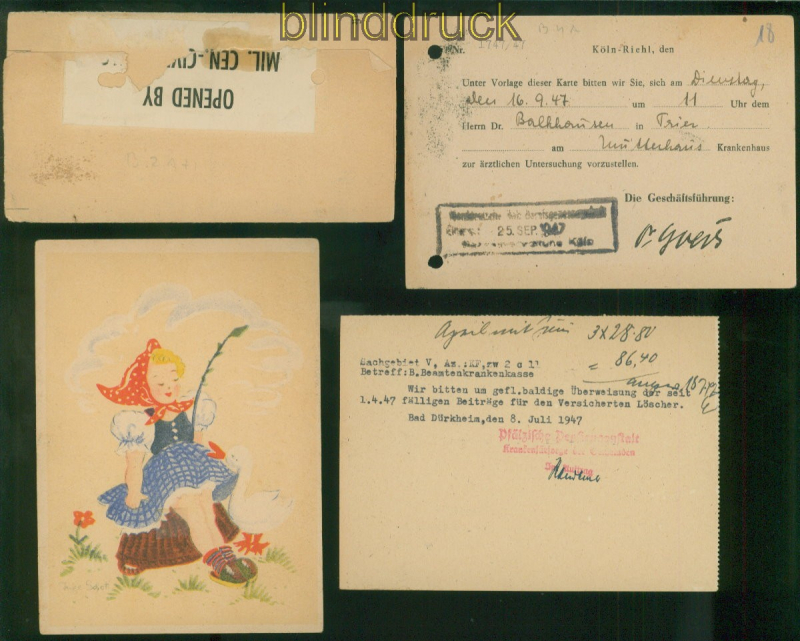 blinddruck
MIL. CEN.-CIV
OPENED BY
18
Nr. 1747/47
Köln-Riehl, den
Unter Vorlage dieser Karte bitten wir Sie, sich am Dienstag,
den 16.9.47 um 11 Uhr dem
Herrn Dr. Balkhausen in Trier
am Mutterhaus Krankenhaus
zur ärztlichen Untersuchung vorzustellen.
Die Geschäftsführung:
25. SEP. 1947
Köln
April mit Juni 3 x 28.80
= 86,40
Sachgebiet V, Az.:KF,zw 2 c 11
Betreff:B.Beamtenkrankenkasse
Wir bitten um gefl.baldige Überweisung der seit
1.4.47 fälligen Beiträge für den Versicherten Löscher.
Bad Dürkheim,den 8. Juli 1947
Pfälzische